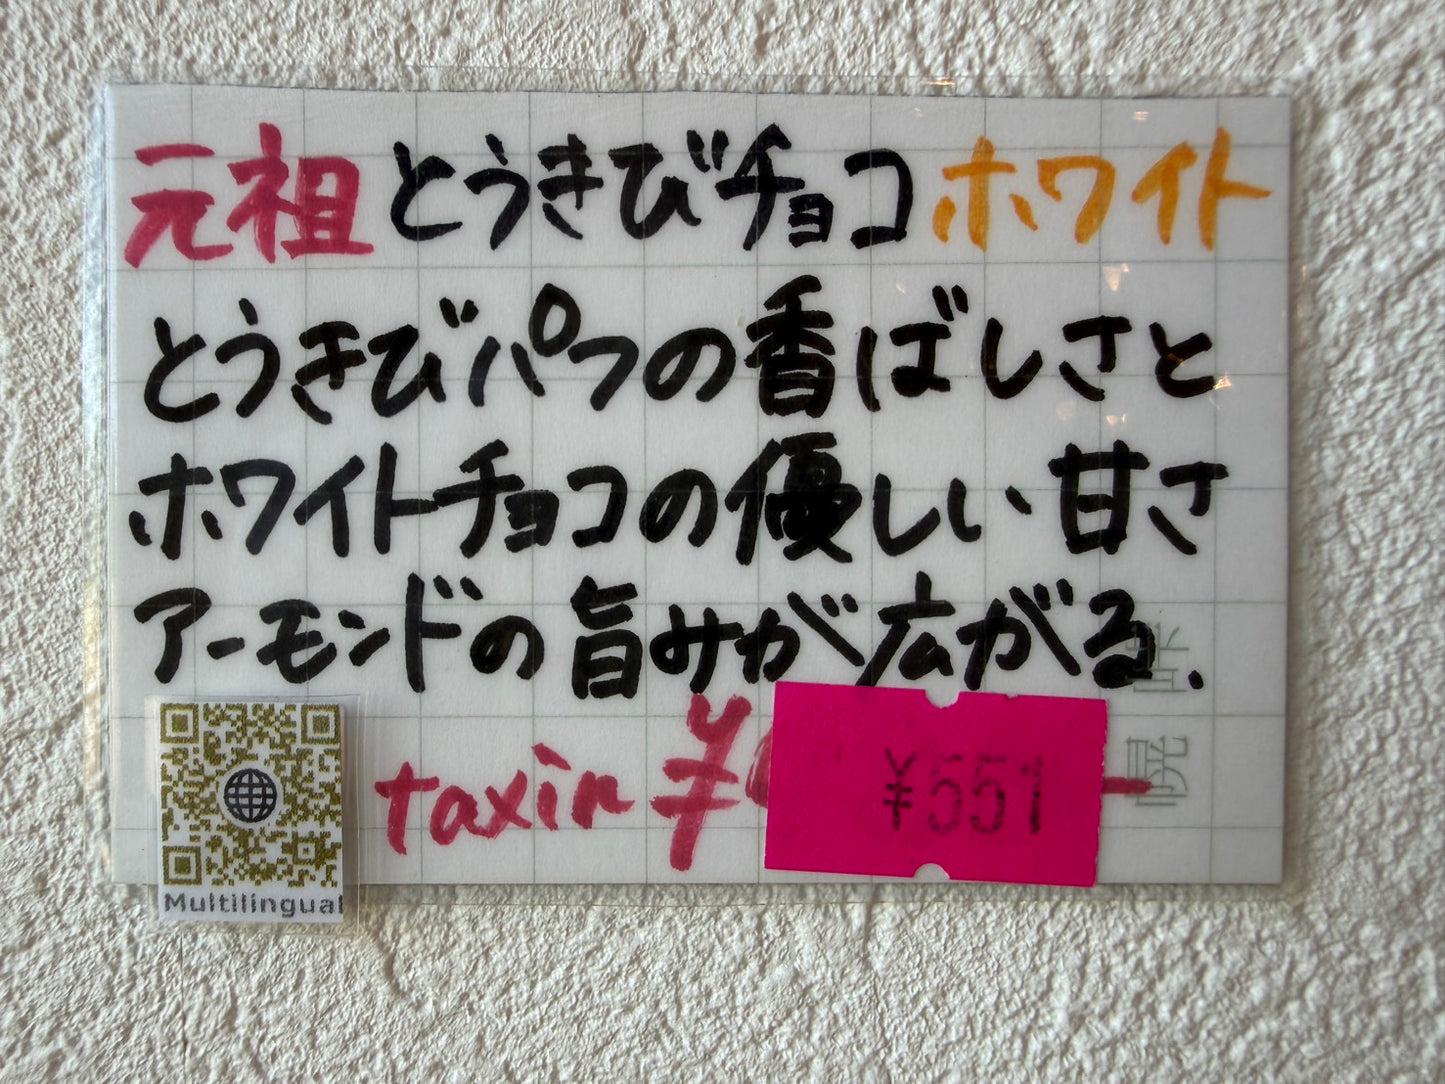 元祖とうきびチョコホワイト
とうきびパフの香ばしさと
ホワイトチョコの優しい甘さ
アーモンドの旨みが広がる.
taxin ¥
¥551
Multilingual